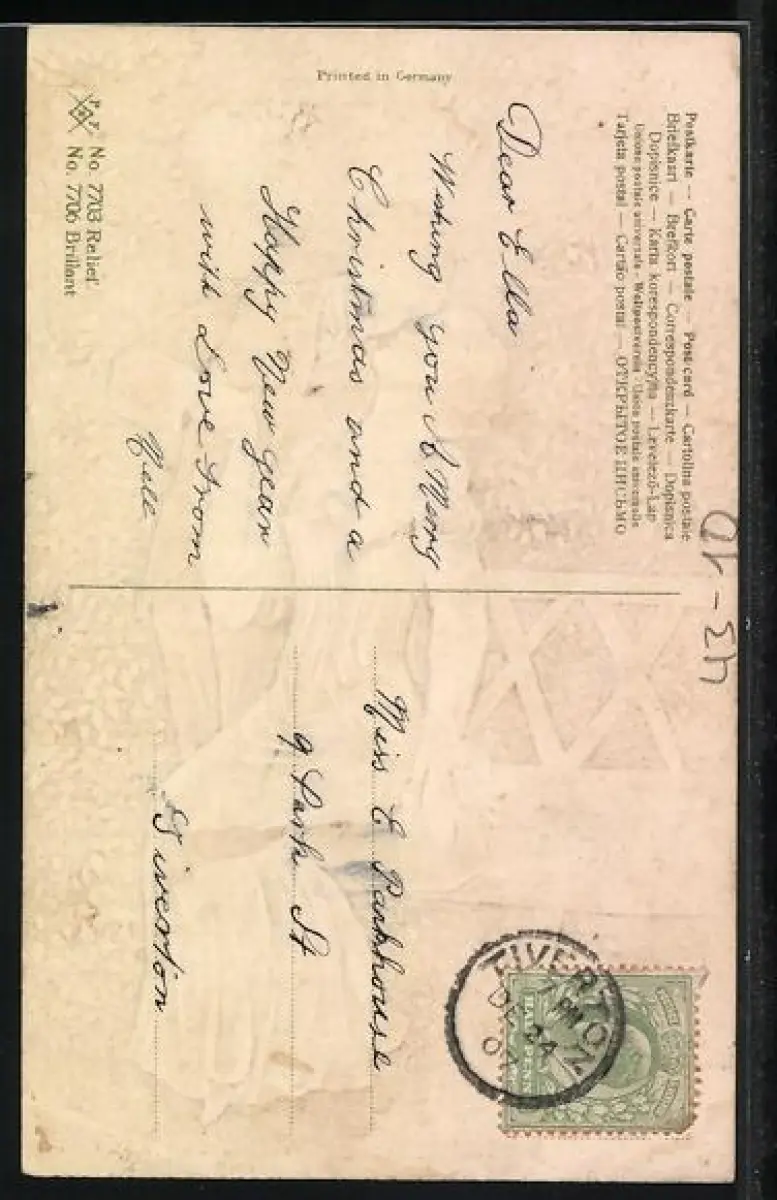 Postkarte — Carte postale — Post card — Cartolina postale
Briefkaart — Brefkort — Correspondenzkarte — Dopisnica
Dopisnice — Karta korespondencyjna — Levelező-Lap
Unione postale universale - Weltpostverein - Union postale universelle
Tarjeta postal — Cartão postal — ОТКРЫТОЕ ПИСЬМО
Dear Ella
Wishing you A Merry
Christmas and a
Happy New year
with Love From
Nell
Printed in Germany
No. 7703 Relief.
No. 7706 Brillant
43-10
TIVERTON
7 PM
DE 24
07
HALF PENNY
Miss E Parkhouse
9 Park St
Tiverton